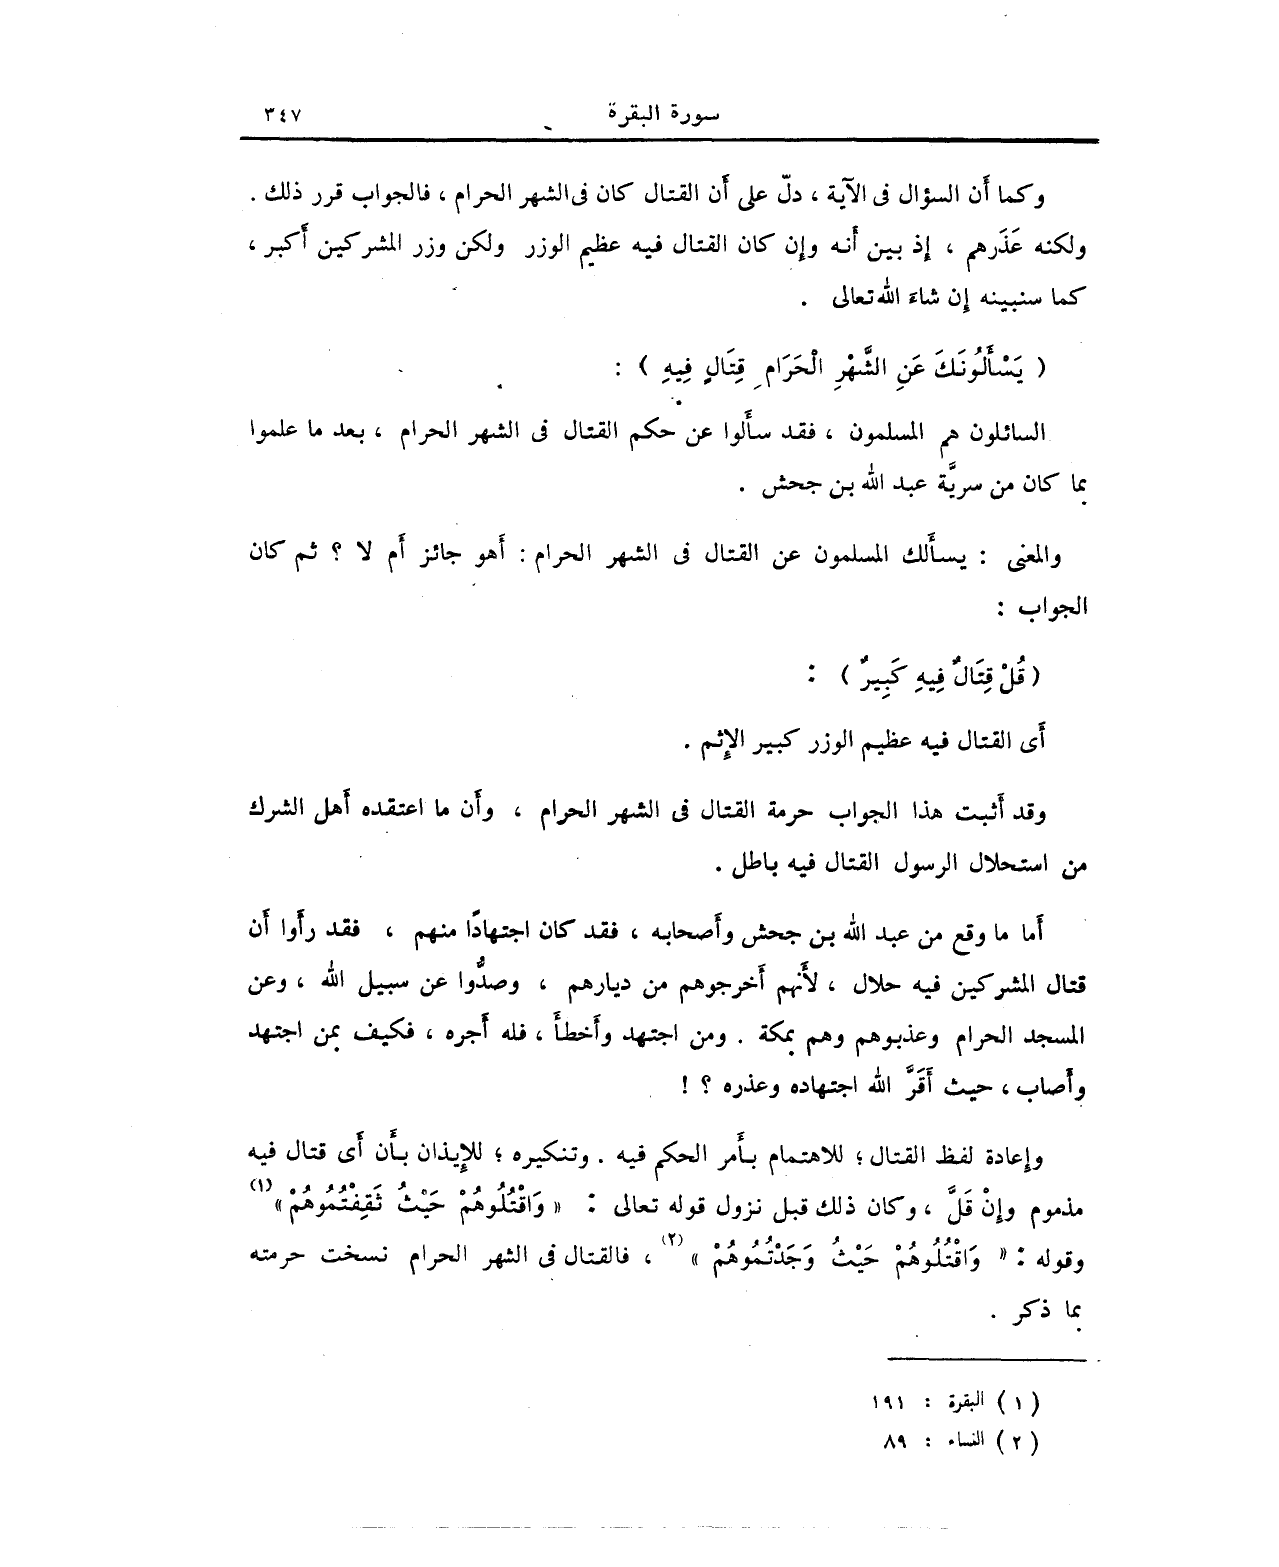 سورة البقرة ٣٤٧
وكما أَن السؤال فى الآية ، دلّ على أَن القتال كان فى الشهر الحرام ، فالجواب قرر ذلك .
ولكنه عَذَرهم ، إذ بين أَنه وإن كان القتال فيه عظيم الوزر ولكن وزر المشركين أَكبر ،
كما سنبينه إِن شاءَ الله تعالى .
( يَسْأَلُونَكَ عَنِ الشَّهْرِ الْحَرَامِ قِتَالٍ فِيهِ ) :
السائلون هم المسلمون ، فقد سأَلوا عن حكم القتال فى الشهر الحرام ، بعد ما علموا
بما كان من سريَّة عبد الله بن جحش .
والمعنى : يسأَلك المسلمون عن القتال فى الشهر الحرام : أَهو جائز أَم لا ؟ ثم كان
الجواب :
( قُلْ قِتَالٌ فِيهِ كَبِيرٌ ) :
أَى القتال فيه عظيم الوزر كبير الإِثم .
وقد أَثبت هذا الجواب حرمة القتال فى الشهر الحرام ، وأَن ما اعتقده أَهل الشرك
من استحلال الرسول القتال فيه باطل .
أَما ما وقع من عبد الله بن جحش وأَصحابه ، فقد كان اجتهادًا منهم ، فقد رأَوا أَن
قتال المشركين فيه حلال ، لأَنهم أَخرجوهم من ديارهم ، وصدُّوا عن سبيل الله ، وعن
المسجد الحرام وعذبوهم وهم بمكة . ومن اجتهد وأَخطأَ ، فله أَجره ، فكيف بمن اجتهد
وأَصاب ، حيث أَقَرَّ الله اجتهاده وعذره ؟ !
وإعادة لفظ القتال ؛ للاهتمام بأَمر الحكم فيه . وتنكيره ؛ للإِيذان بأَن أَى قتال فيه
مذموم وإِنْ قَلَّ ، وكان ذلك قبل نزول قوله تعالى : « وَاقْتُلُوهُمْ حَيْثُ ثَقِفْتُمُوهُمْ » (١)
وقوله : « وَاقْتُلُوهُمْ حَيْثُ وَجَدْتُمُوهُمْ » (٢) ، فالقتال فى الشهر الحرام نسخت حرمته
بما ذكر .
( ١ ) البقرة : ١٩١
( ٢ ) النساء : ٨٩